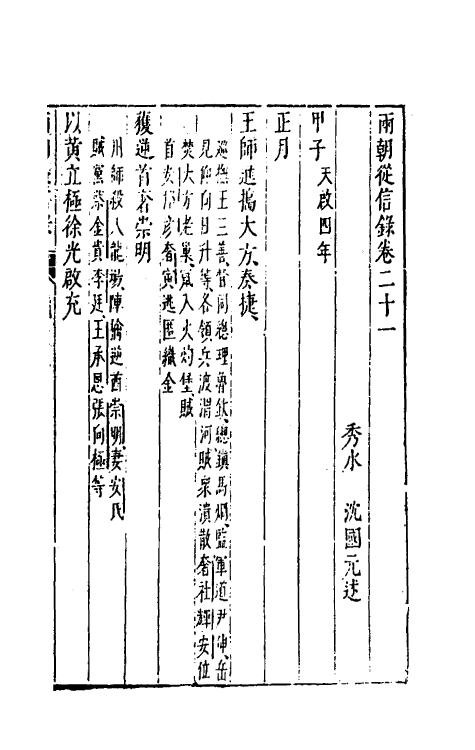 兩朝從信錄卷二十一
秀水 沈國元述
甲子 天啟四年
正月
王師進搗大方奏捷
巡撫王三善督同總理魯欽總鎮馬炯監軍道尹伸岳
見仰向日升等各領兵渡渭河賊衆潰散奢社輝安位
焚大方老巢竄入火灼堡賊
首安邦彥奢寅逃匿織金
獲逆首奢崇明
川師殺入龍場陣擒逆酋崇明妻安氏
賊黨蔡金貴李廷王承恩張向極等
以黃立極徐光啟充